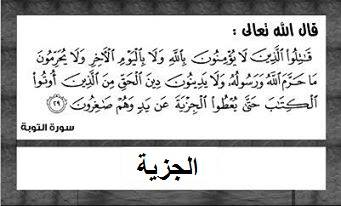 قال الله تعالى :
قَـٰتِلُوا۟ ٱلَّذِينَ لَا يُؤْمِنُونَ بِٱللَّهِ وَلَا بِٱلْيَوْمِ ٱلْـَٔاخِرِ وَلَا يُحَرِّمُونَ
مَا حَرَّمَ ٱللَّهُ وَرَسُولُهُۥ وَلَا يَدِينُونَ دِينَ ٱلْحَقِّ مِنَ ٱلَّذِينَ أُوتُوا۟
ٱلْكِتَـٰبَ حَتَّىٰ يُعْطُوا۟ ٱلْجِزْيَةَ عَن يَدٍ وَهُمْ صَـٰغِرُونَ ٢٩
سورة التوبة
الجزية